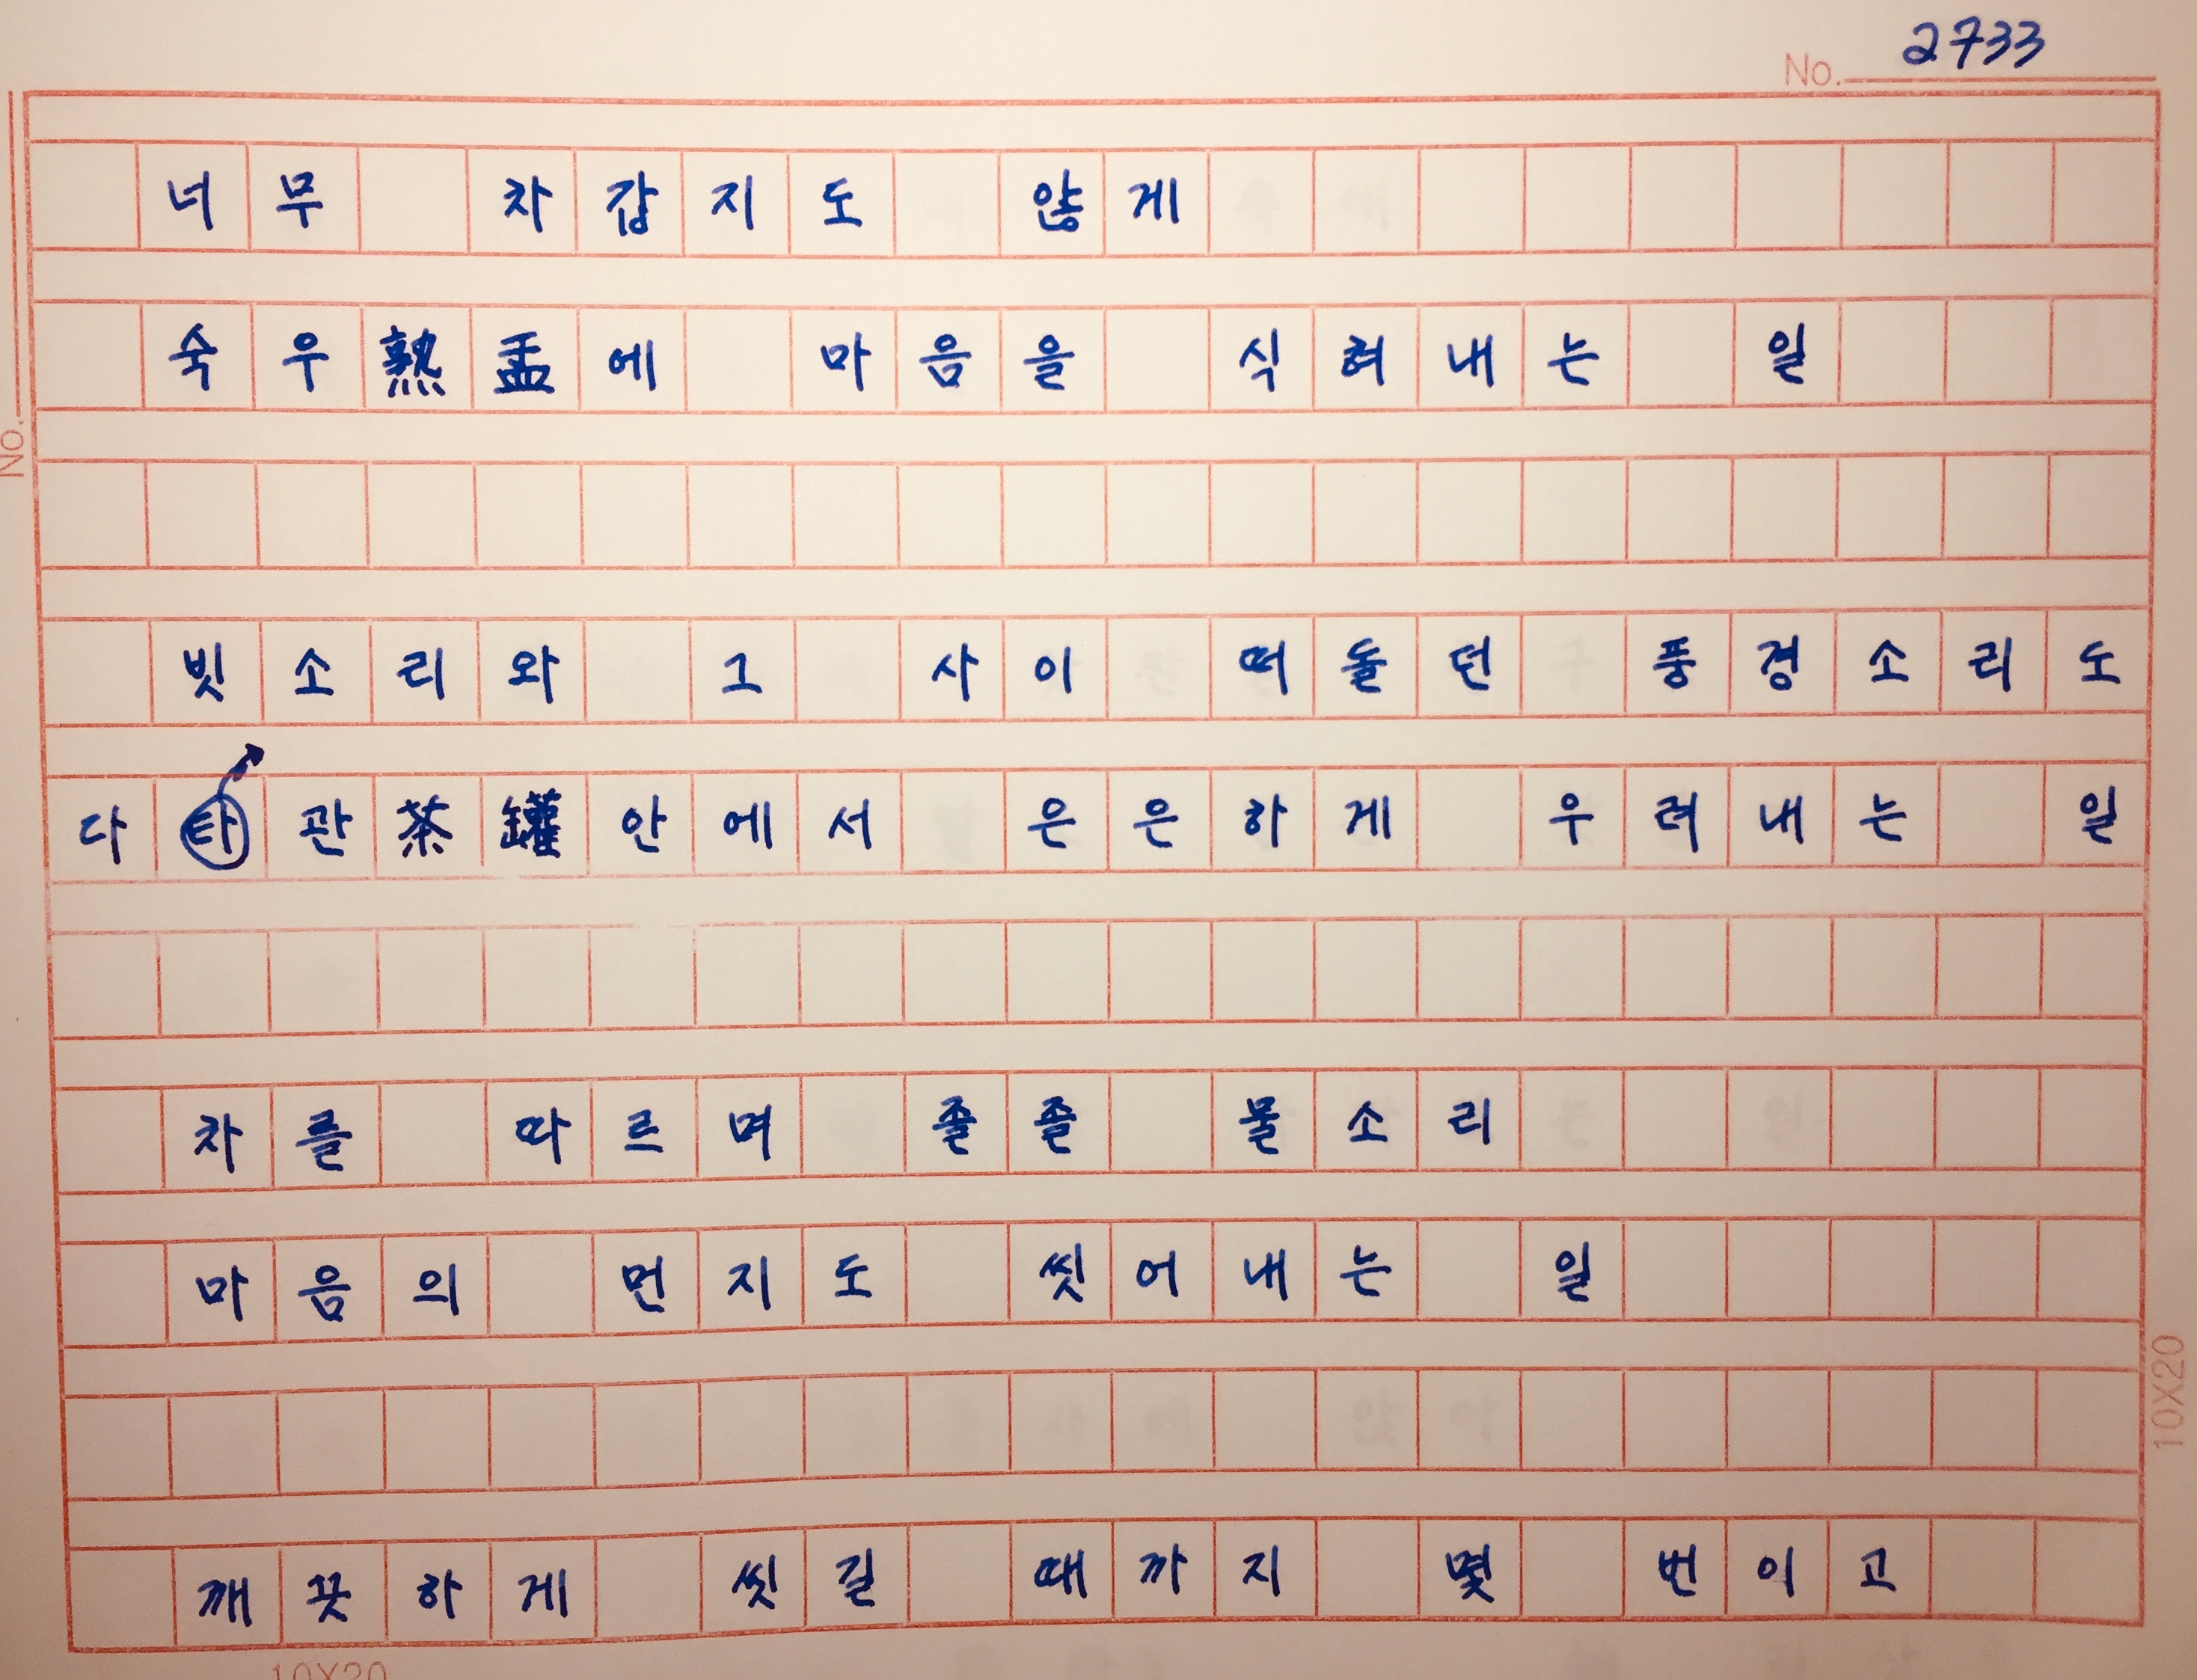 No. 2733
너무 차갑지도 않게
숙우熟盂에 마음을 식혀내는 일
No.
빗소리와 그 사이 떠돌던 풍경소리도
다관茶罐안에서 은은하게 우려내는 일
차를 따르며 졸졸 물소리
마음의 먼지도 씻어내는 일
10X20
깨끗하게 씻길 때까지 몇 번이고
10X20